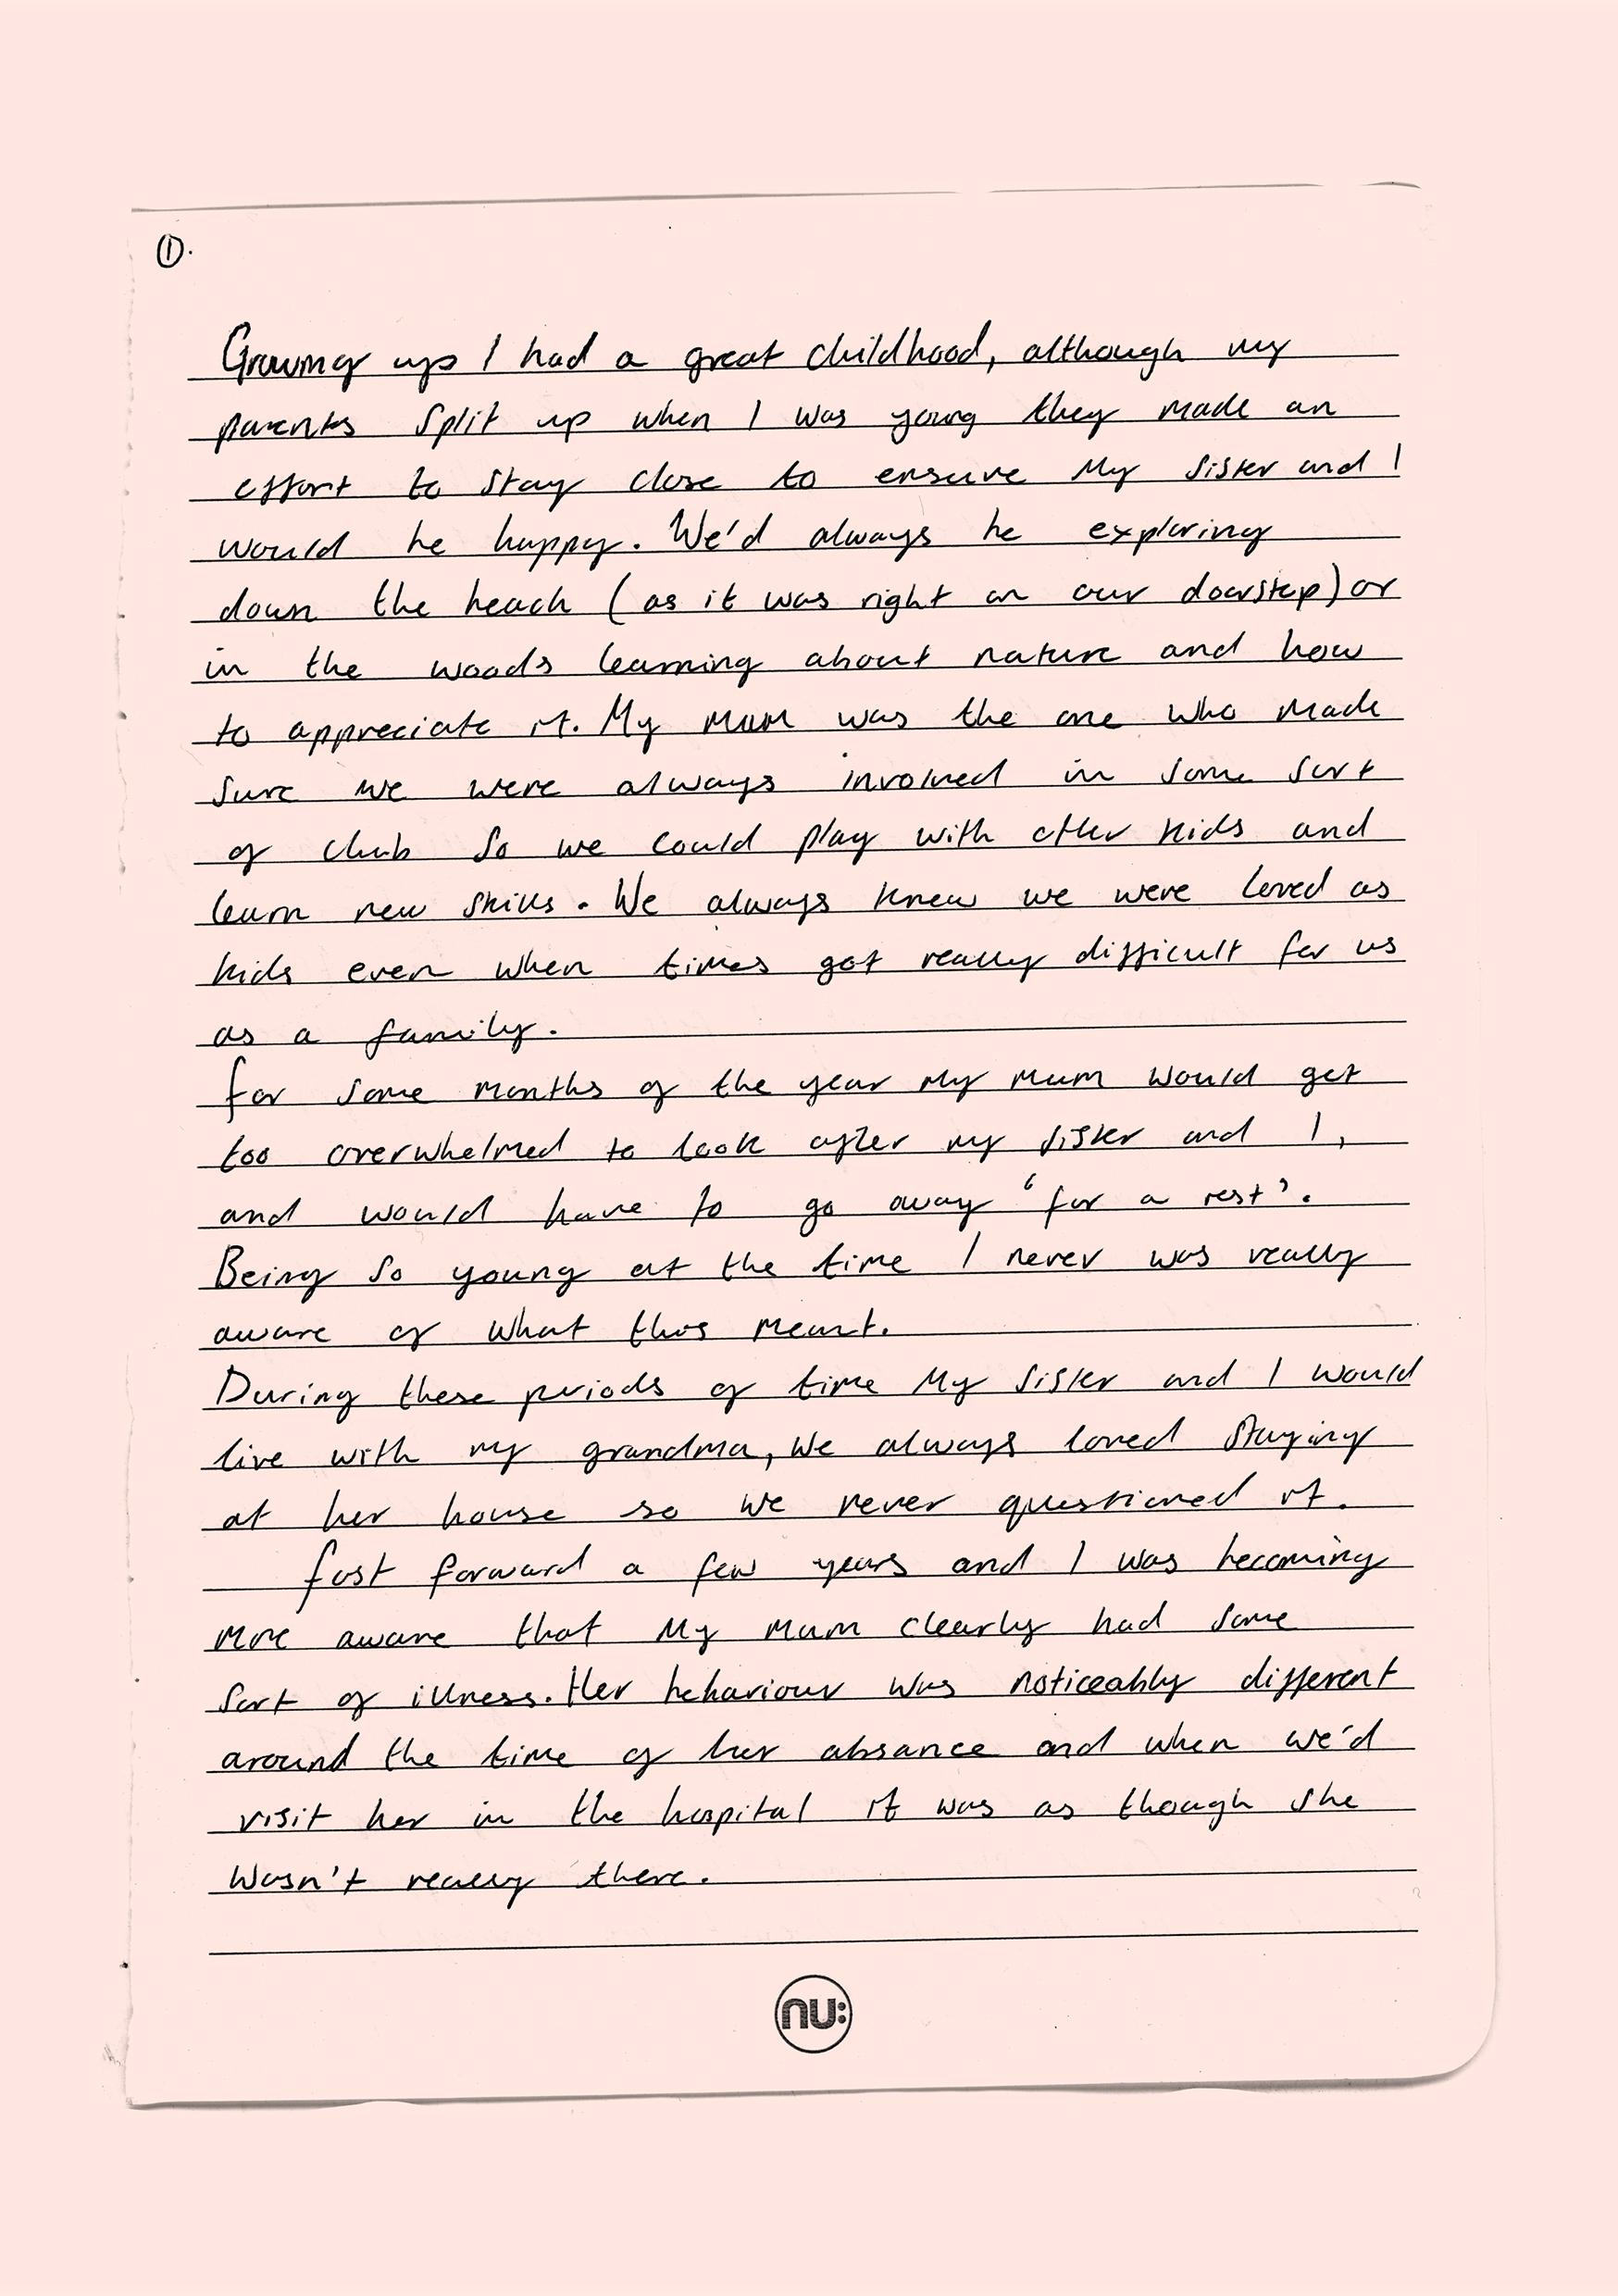 ①.
Growing up I had a great childhood, although my
parents split up when I was young they made an
effort to stay close to ensure My sister and I
would be happy. We'd always be exploring
down the beach (as it was right on our doorstep) or
in the woods learning about nature and how
to appreciate it. My mum was the one who made
sure we were always involved in some sort
of club so we could play with other kids and
learn new skills. We always knew we were loved as
kids even when times got really difficult for us
as a family.
for some months of the year my mum would get
too overwhelmed to look after my sister and I,
and would have to go away 'for a rest'.
Being so young at the time I never was really
aware of what this meant.
During these periods of time My sister and I would
live with my grandma, we always loved staying
at her house so we never questioned it.
fast forward a few years and I was becoming
more aware that My mum clearly had some
sort of illness. Her behaviour was noticeably different
around the time of her absance and when we'd
visit her in the hospital it was as though she
wasn't really there.
nu: